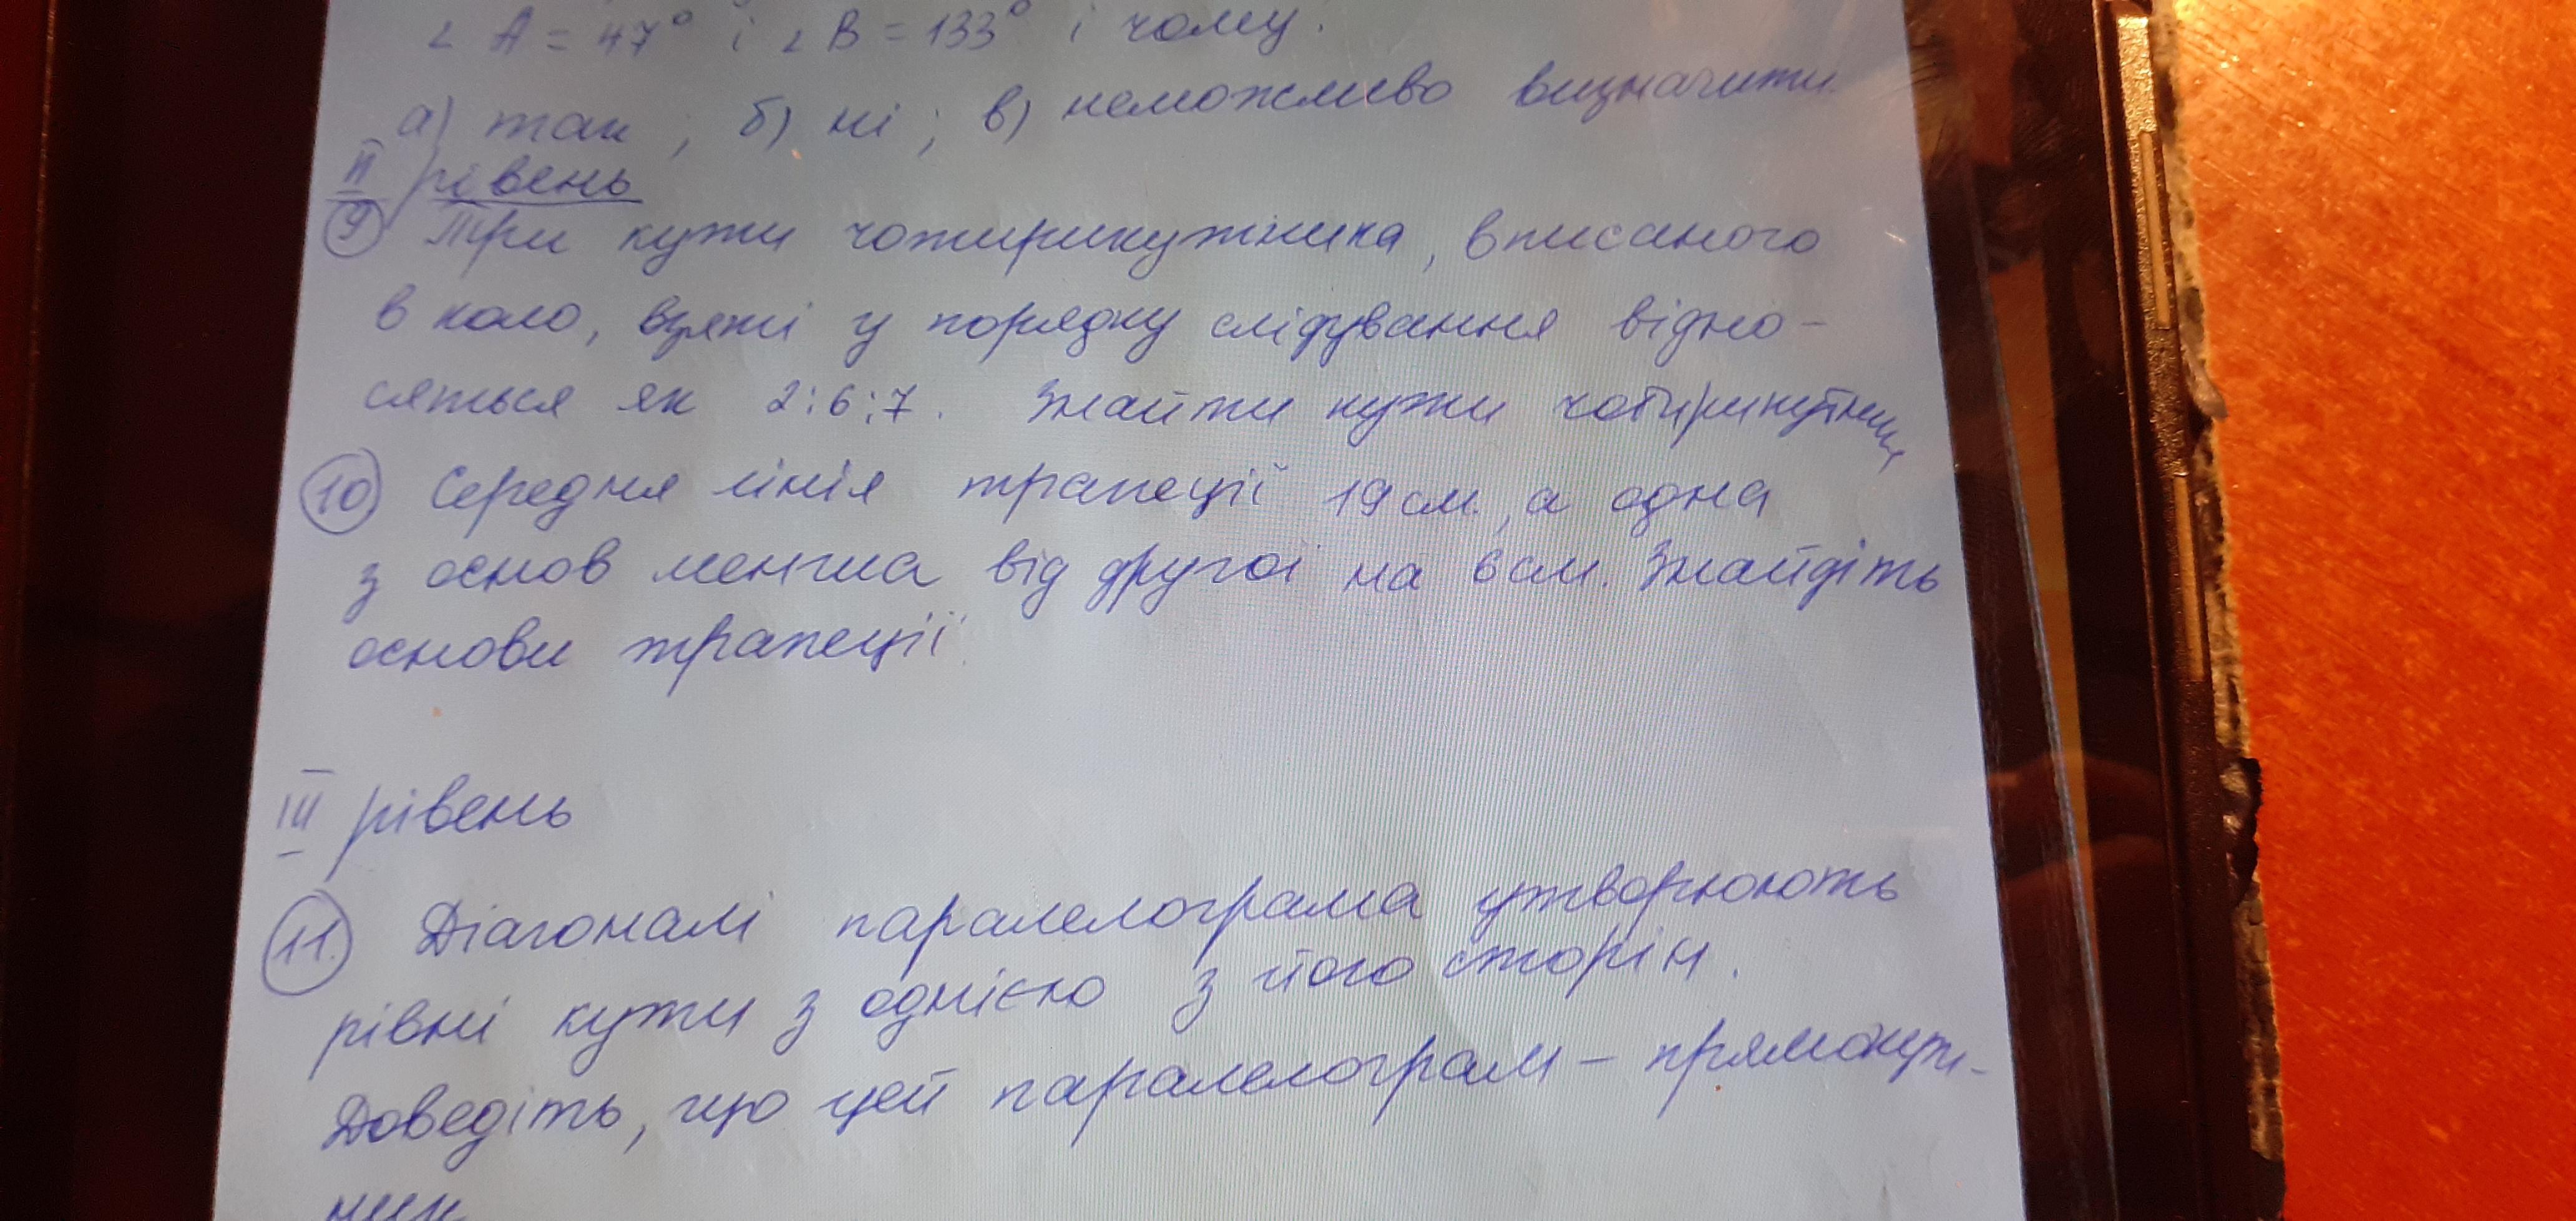 ∠ A = 47° і ∠ B = 133° і чому.
а) так ; б) ні ; в) неможливо визначити
II рівень
9 Три кути чотирикутника, вписаного
в коло, взяті у порядку слідування відно-
сяться як 2:6:7. Знайти кути чотирикутника
10 Середня лінія трапеції 19 см, а одна
з основ менша від другої на 6 см. Знайдіть
основи трапеції.
III рівень
11. Діагоналі паралелограма утворюють
рівні кути з однією з його сторін.
Доведіть, що цей паралелограм – прямокут-
ник